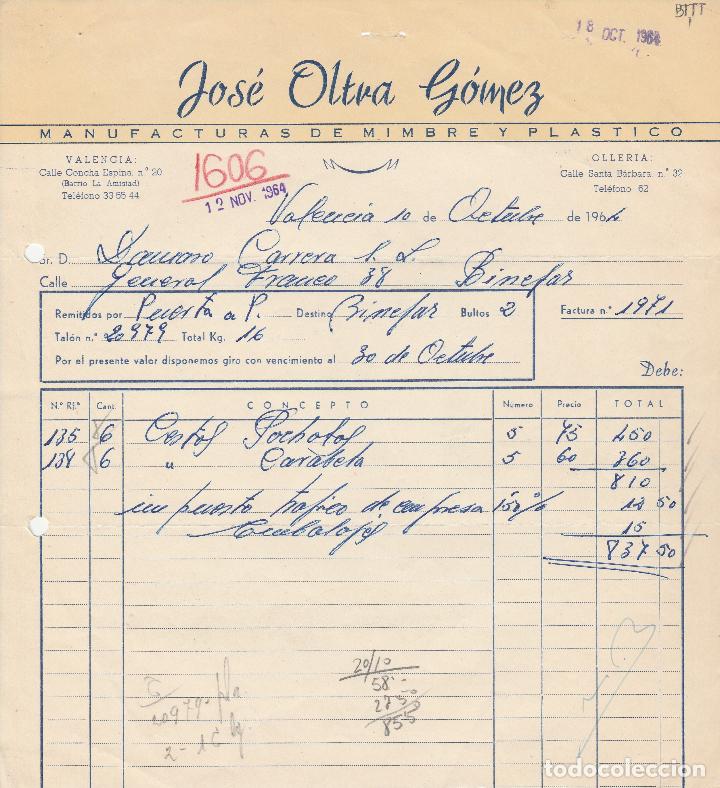 18 OCT. 1964
José Oltra Gómez
MANUFACTURAS DE MIMBRE Y PLASTICO
VALENCIA:
Calle Concha Espina, n.º 20
(Barrio La Amistad)
Teléfono 33 55 44
1606
12 NOV. 1964
OLLERIA:
Calle Santa Bárbara, n.º 32
Teléfono 62
Valencia 10 de Octubre de 1964
Sr. D. Carrera S. L.
Calle General Franco 38 Binefar
Remitidos por Puerta a P. Destino Binefar Bultos 2
Factura n.º 1971
Talón n.º 20979 Total Kg. 16
Por el presente valor disponemos giro con vencimiento al 30 de Octubre
Debe:
N.º Rf.ª Cant. CONCEPTO Número Precio TOTAL
135 6 Cestos 5 75 450
134 6 " Carabela 5 60 360
810
impuesto trafico de empresa 1'50% 12 50
Embalajes 15
837 50
20/10
58
27 50
855
20979
2 - 16 kg
todocoleccion.net